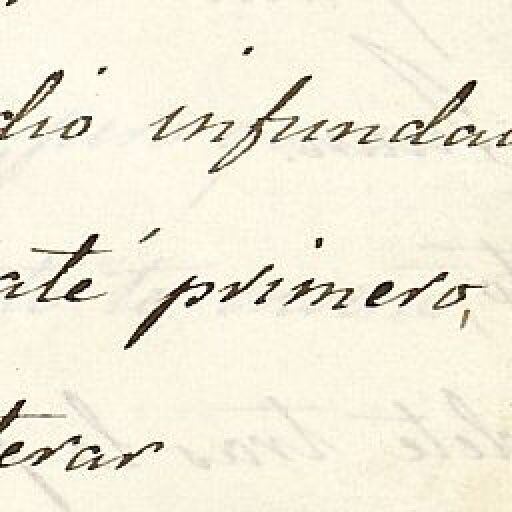 dio infundad
até primero,
terar